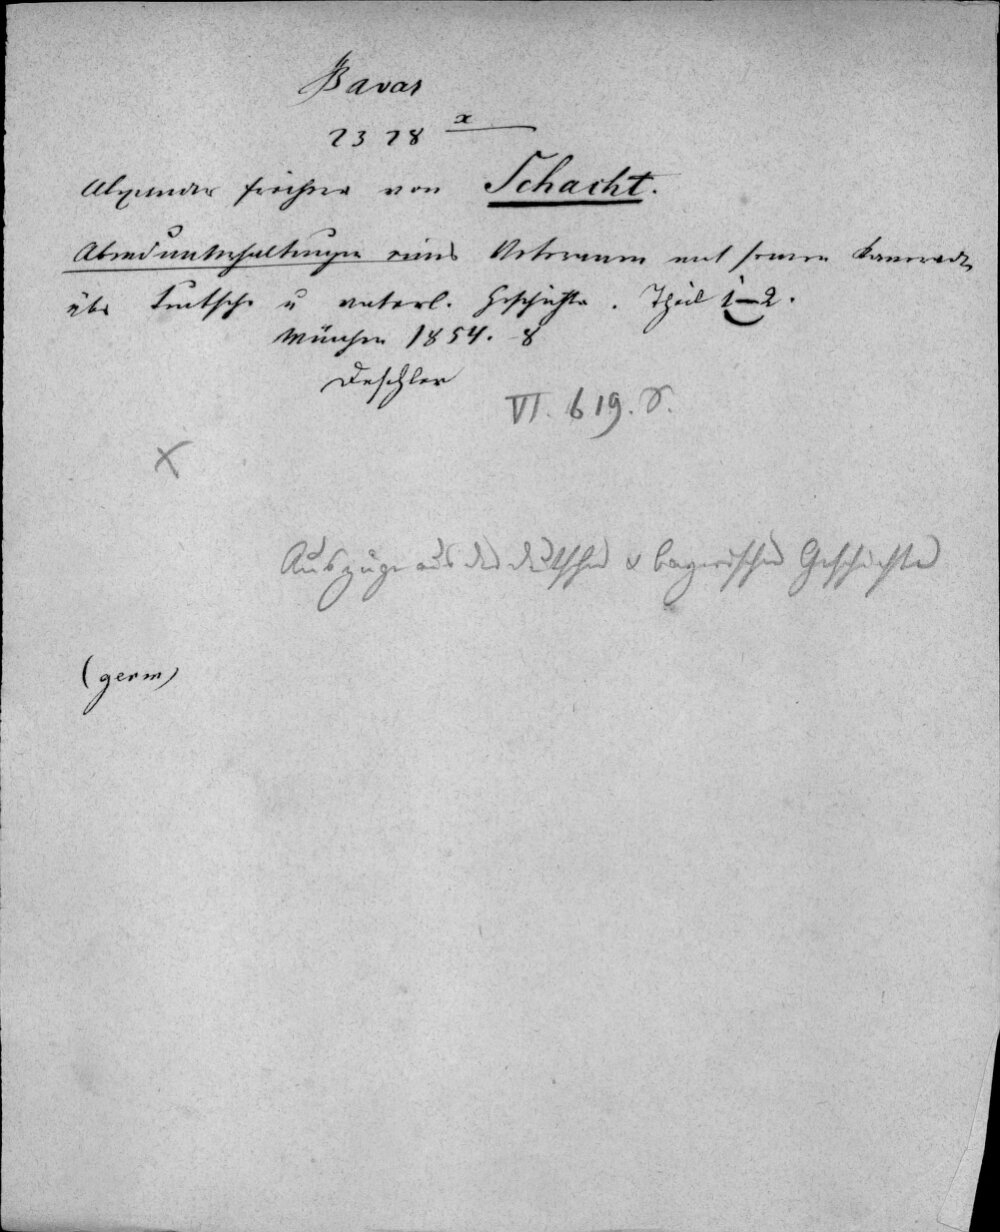 Bavar
2378 x
Alexander Freiherr von Schacht.
Abendunterhaltungen eines Veteranen mit seinen Kameraden
über teutsche u vaterl. Geschichte. Theil 1–2.
München 1854. 8
Deschler
VI. 619. γ.
x
Auszüge aus der deutschen & bayerischen Geschichte
(germ)